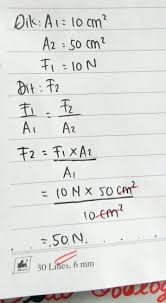 Dik: A1 = 10 cm²
A2 = 50 cm²
F1 = 10 N
Dit: F2
F1 = F2
A1 A2
F2 = F1 x A2
A1
= 10 N x 50 cm²
10 cm²
= 50 N.
30 Lines, 6 mm